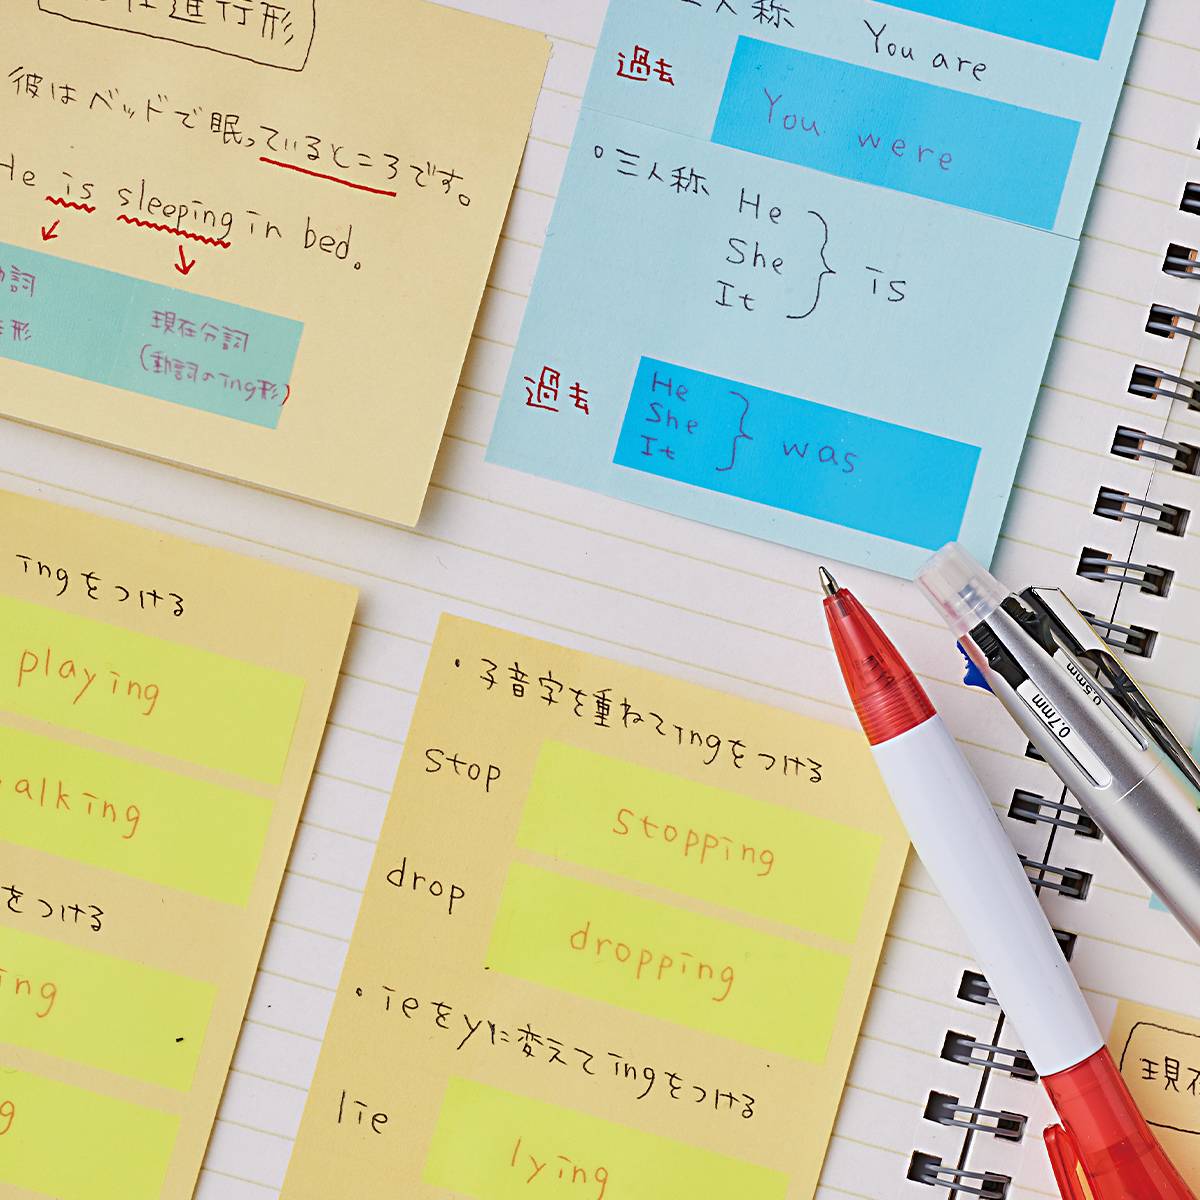 進行形
彼はベッドで眠っているところです。
He is sleeping in bed.
詞
形
現在分詞
(動詞のing形)
三人称
You are
過去
You were
。三人称
He
She
It
is
過去
He
She
It
was
ingをつける
playing
alking
をつける
ing
g
・子音字を重ねてingをつける
stop
stopping
drop
dropping
・ieをyに変えてingをつける
lie
lying
0.5mm
0.7mm
現在